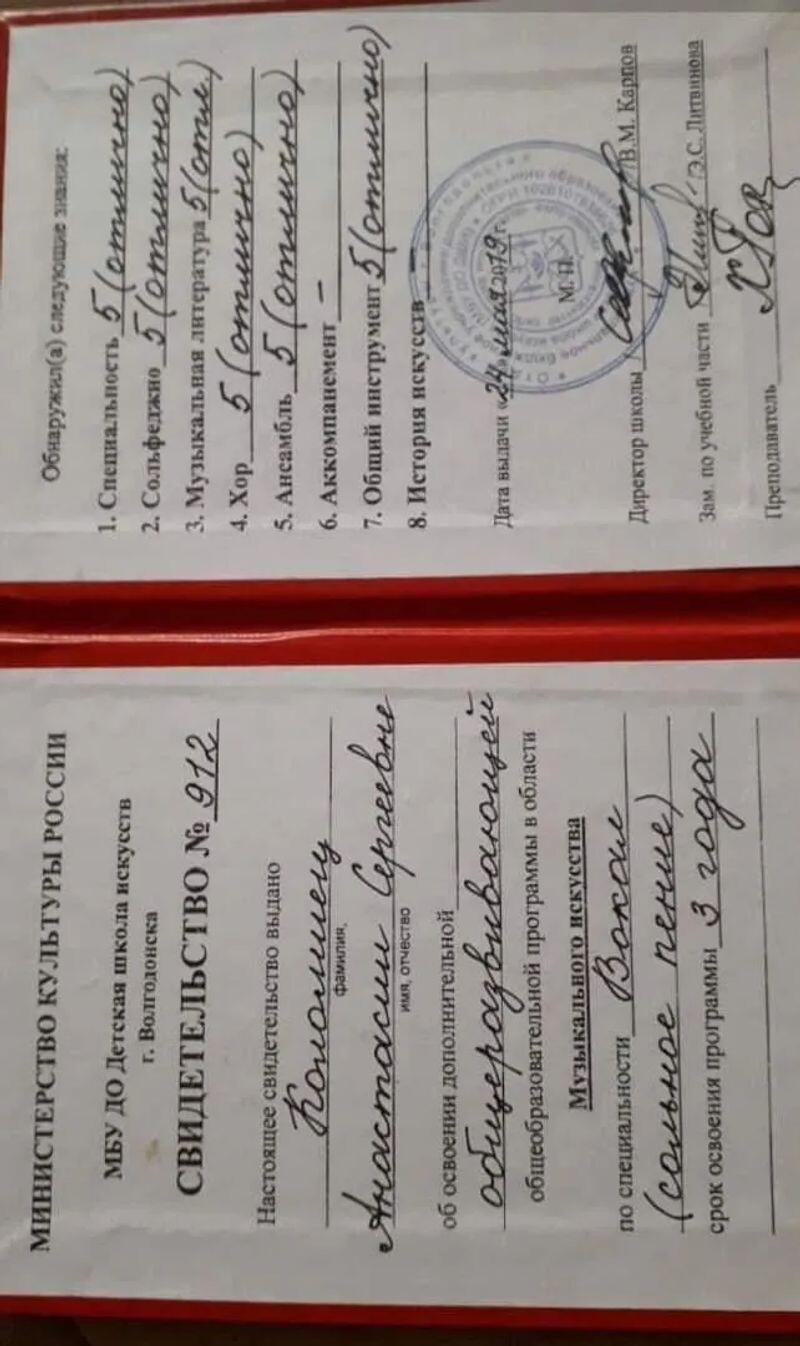 МИНИСТЕРСТВО КУЛЬТУРЫ РОССИИ
МБУ ДО Детская школа искусств
г. Волгодонска
СВИДЕТЕЛЬСТВО № 912
Настоящее свидетельство выдано
Коломиец
фамилия,
Анастасии Сергеевне
имя, отчество
об освоении дополнительной
общеразвивающей
общеобразовательной программы в области
Музыкального искусства
по специальности Вокал
(сольное пение)
срок освоения программы 3 года
Обнаружил(а) следующие знания:
1. Специальность 5 (отлично)
2. Сольфеджио 5 (отлично)
3. Музыкальная литература 5 (отл.)
4. Хор 5 (отлично)
5. Ансамбль 5 (отлично)
6. Аккомпанемент –
7. Общий инструмент 5 (отлично)
8. История искусств –
Дата выдачи «24» мая 2019 г.
М. П.
Директор школы В.М. Карпов
Зам. по учебной части Э.С. Литвинова
Преподаватель